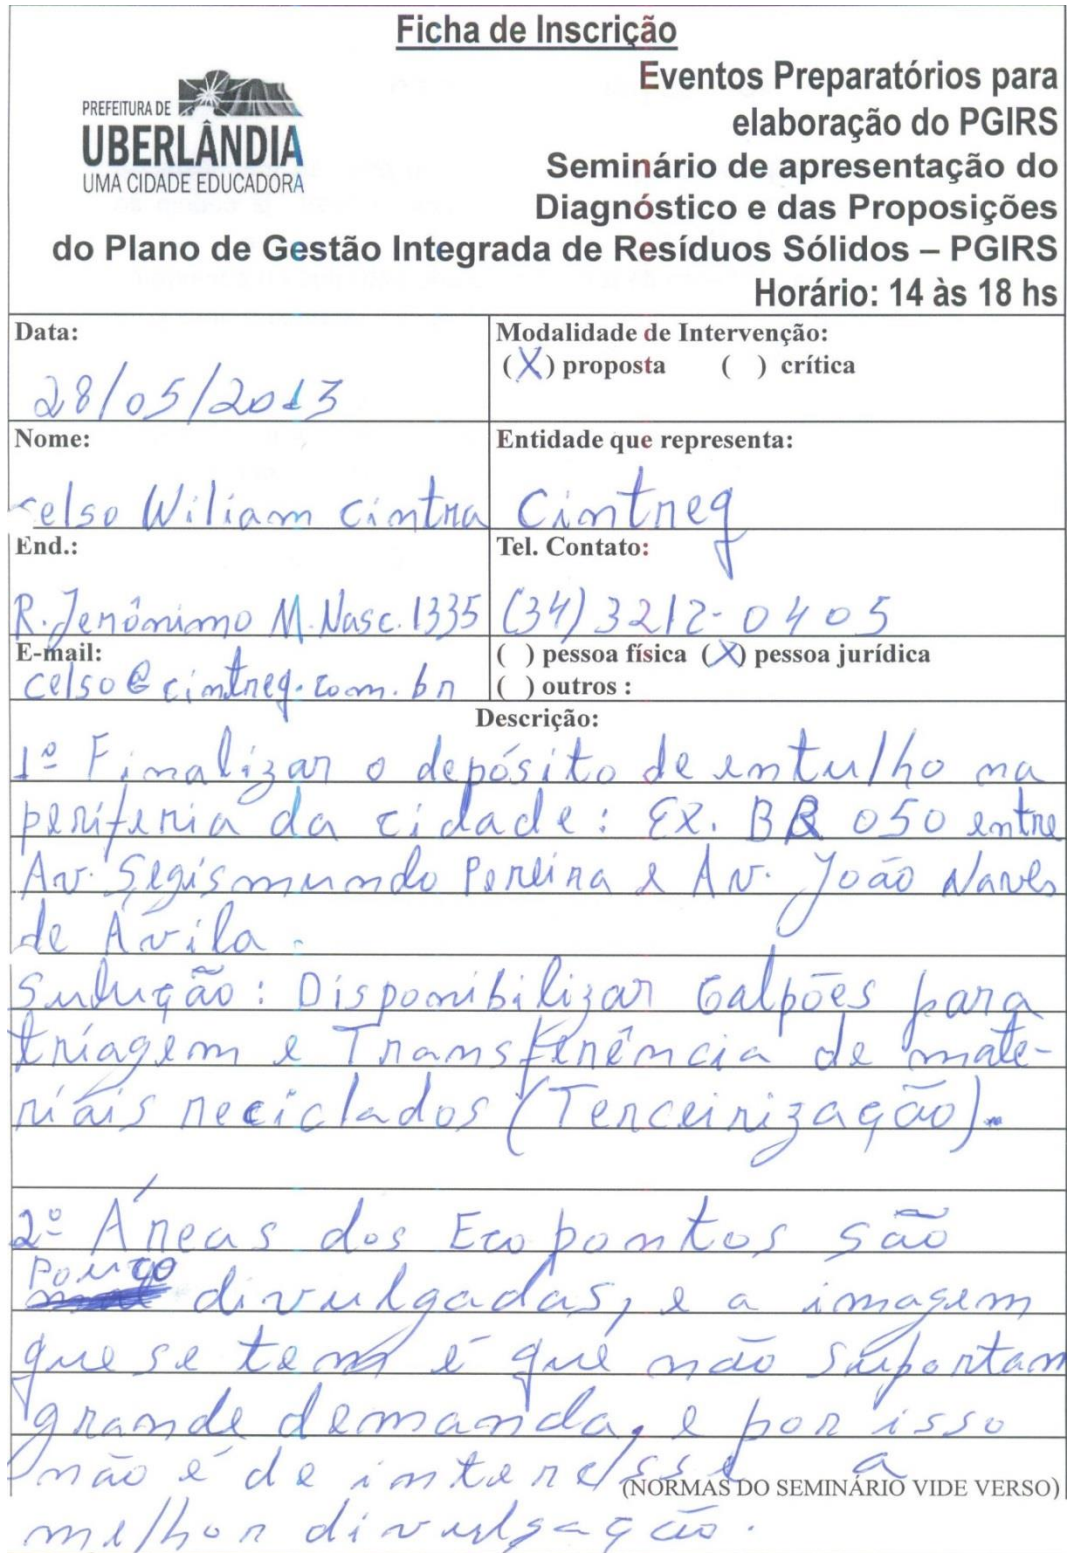 Ficha de Inscrição
PREFEITURA DE
UBERLÂNDIA
UMA CIDADE EDUCADORA
Eventos Preparatórios para
elaboração do PGIRS
Seminário de apresentação do
Diagnóstico e das Proposições
do Plano de Gestão Integrada de Resíduos Sólidos – PGIRS
Horário: 14 às 18 hs
Data:
28/05/2013
Modalidade de Intervenção:
(X) proposta ( ) crítica
Nome:
Celso Wiliam Cintra
Entidade que representa:
Cintreq
End.:
R. Jenônimo M. Nasc. 1335
Tel. Contato:
(34) 3212-0405
E-mail:
celso@cintreq.com.br
( ) pessoa física (X) pessoa jurídica
( ) outros :
Descrição:
1º Finalizar o depósito de entulho na
periferia da cidade: Ex. BR 050 entre
Av. Segismundo Pereira e Av. João Naves
de Ávila.
Sulução: Disponibilizar Galpões para
triagem e Transferência de mate-
riais reciclados (Terceirização).
2º Áreas dos Ecopontos são
Pouco divulgadas, e a imagem
que se tem é que não suportam
grande demanda, e por isso
não é de interesse a
(NORMAS DO SEMINÁRIO VIDE VERSO)
melhor divulgação.